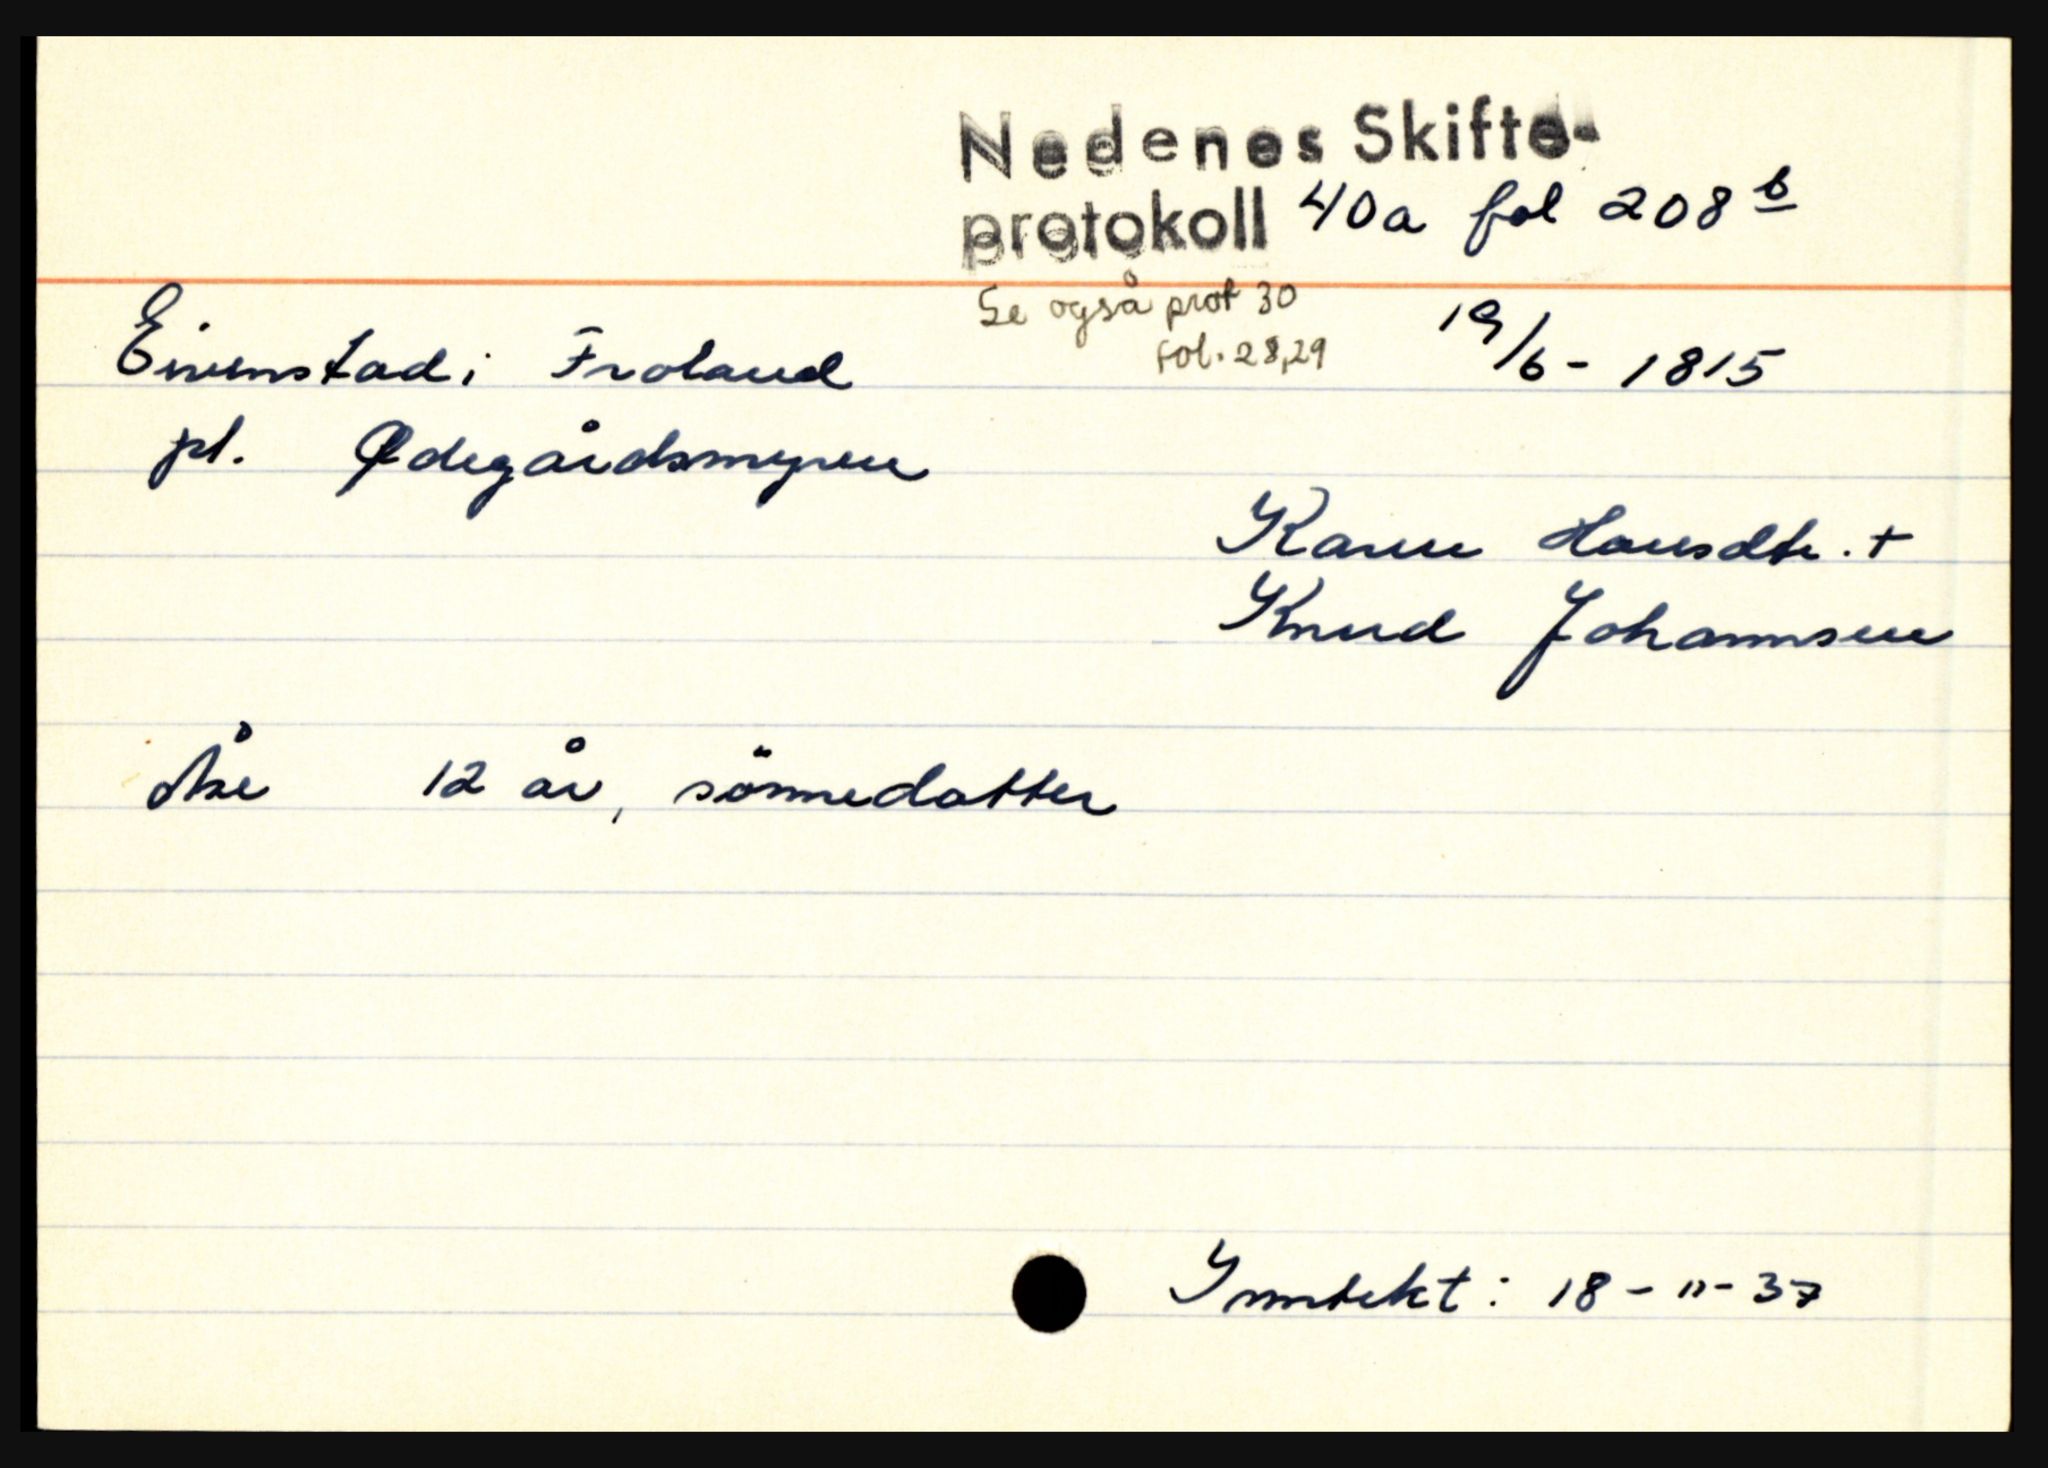 Nedenes Skifte-
protokoll 40a fol 208 b
Se også prot 30
fol. 28,29
19/6 - 1815
Eivenstad i Froland
pl. Ødegårdsmyren
Karen Hansdtr. +
Knud Johannsen
Åse 12 år, sönnedatter
Inntekt: 18 - " - 37